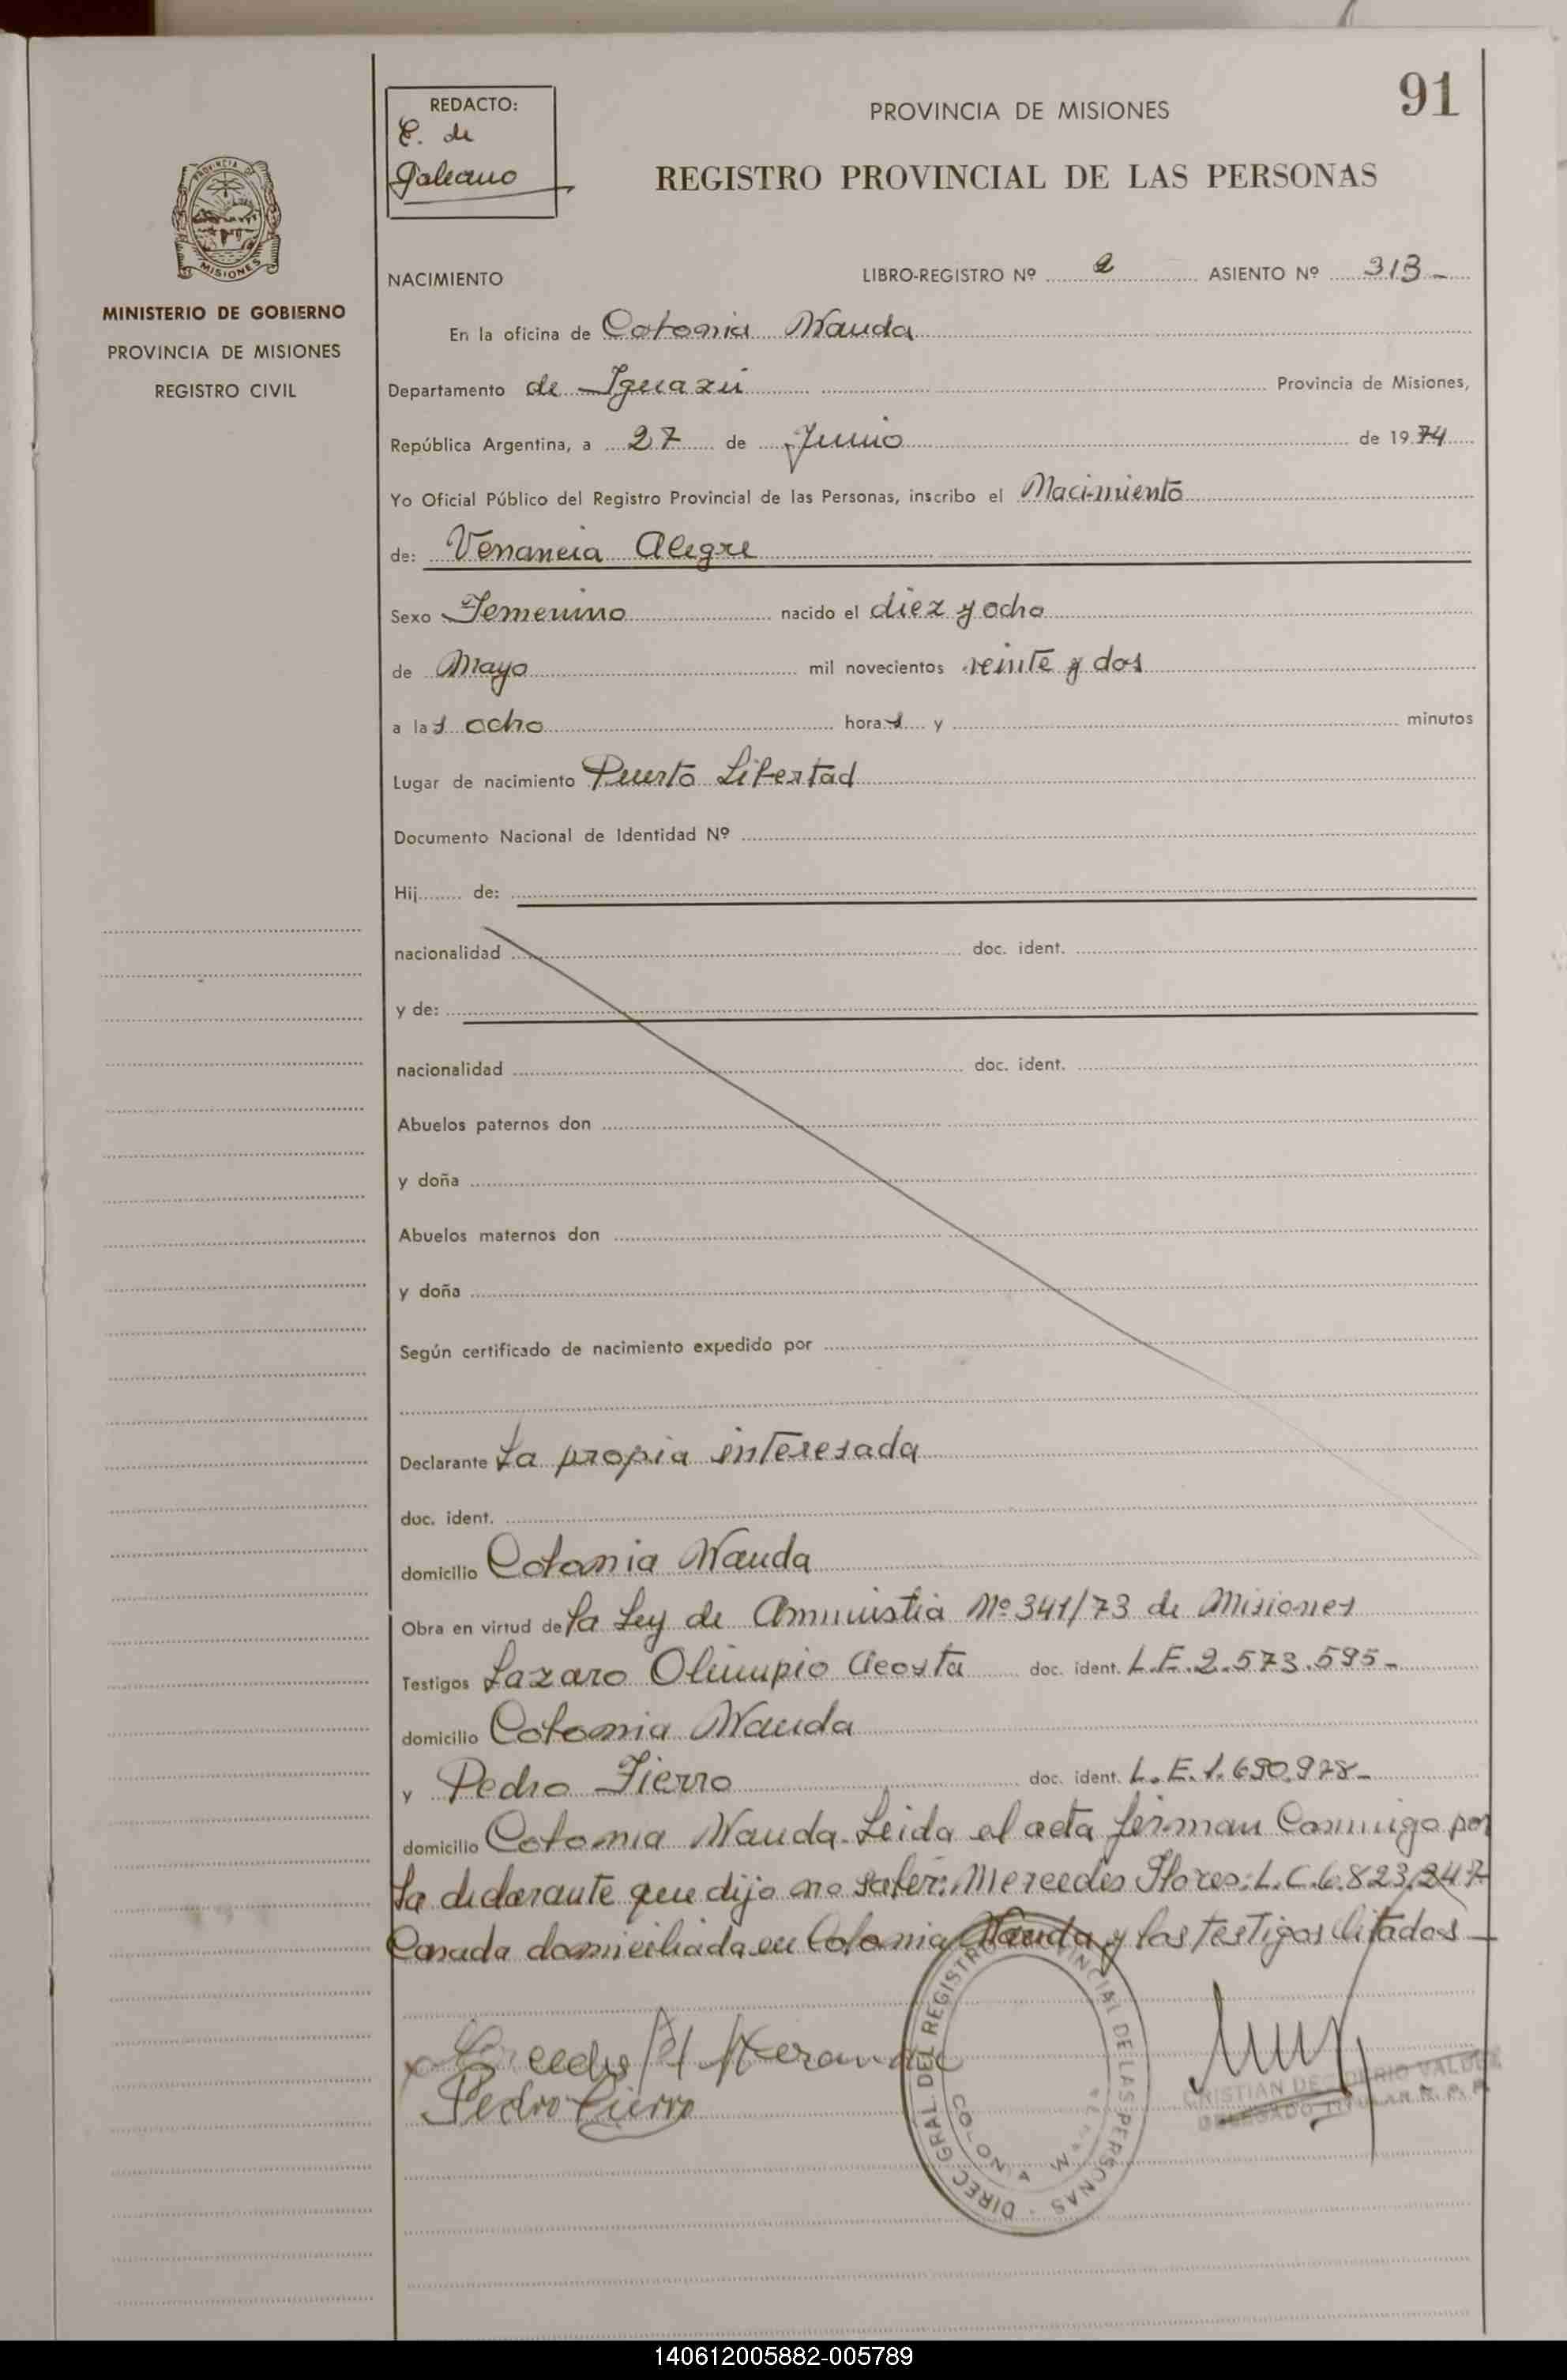 91
REDACTO:
C. de
Galeano
PROVINCIA DE MISIONES
REGISTRO PROVINCIAL DE LAS PERSONAS
PROVINCIA
MISIONES
MINISTERIO DE GOBIERNO
PROVINCIA DE MISIONES
REGISTRO CIVIL
NACIMIENTO LIBRO-REGISTRO Nº 2 ASIENTO Nº 313-
En la oficina de Colonia Wanda
Departamento de Iguazú Provincia de Misiones,
República Argentina, a 27 de Junio de 1974
Yo Oficial Público del Registro Provincial de las Personas, inscribo el Nacimiento
de: Venancia Alegre
Sexo Femenino nacido el diez y ocho
de Mayo mil novecientos veinte y dos
a las ocho horas y minutos
Lugar de nacimiento Puerto Libertad
Documento Nacional de Identidad Nº
Hij de:
nacionalidad doc. ident.
y de:
nacionalidad doc. ident.
Abuelos paternos don
y doña
Abuelos maternos don
y doña
Según certificado de nacimiento expedido por
Declarante La propia interesada
doc. ident.
domicilio Colonia Wanda
Obra en virtud de la Ley de Amnistia Nº 341/73 de Misiones
Testigos Lazaro Olimpio Acosta doc. ident. L.E.2.573.595-
domicilio Colonia Wanda
y Pedro Fierro doc. ident. L.E.1.690.978-
domicilio Colonia Wanda. Leida el acta firman Conmigo por
la declarante que dijo no saber: Mercedes Flores: L.C.6.823.247
Casada domiciliada en Colonia Wanda y los testigos citados
Pedro Fierro
DIREC GRAL DEL REGISTRO PROVINCIAL DE LAS PERSONAS
COLONIA WANDA
CRISTIAN DESIDERIO VALDEZ
DELEGADO TITULAR R. P. P.
140612005882-005789